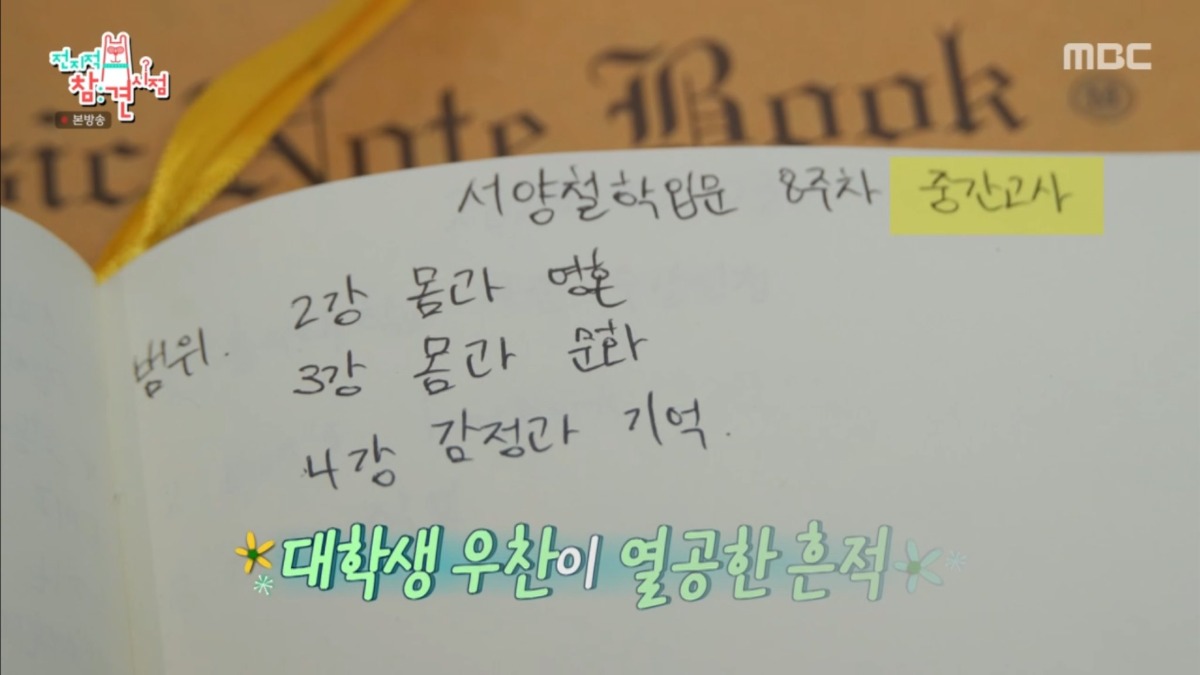 전지적
참견
시점
본방송
MBC
sic Note Book
서양철학입문 8주차 중간고사
범위. 2강 몸과 영혼
3강 몸과 문화
4강 감정과 기억.
대학생 우찬이 열공한 흔적